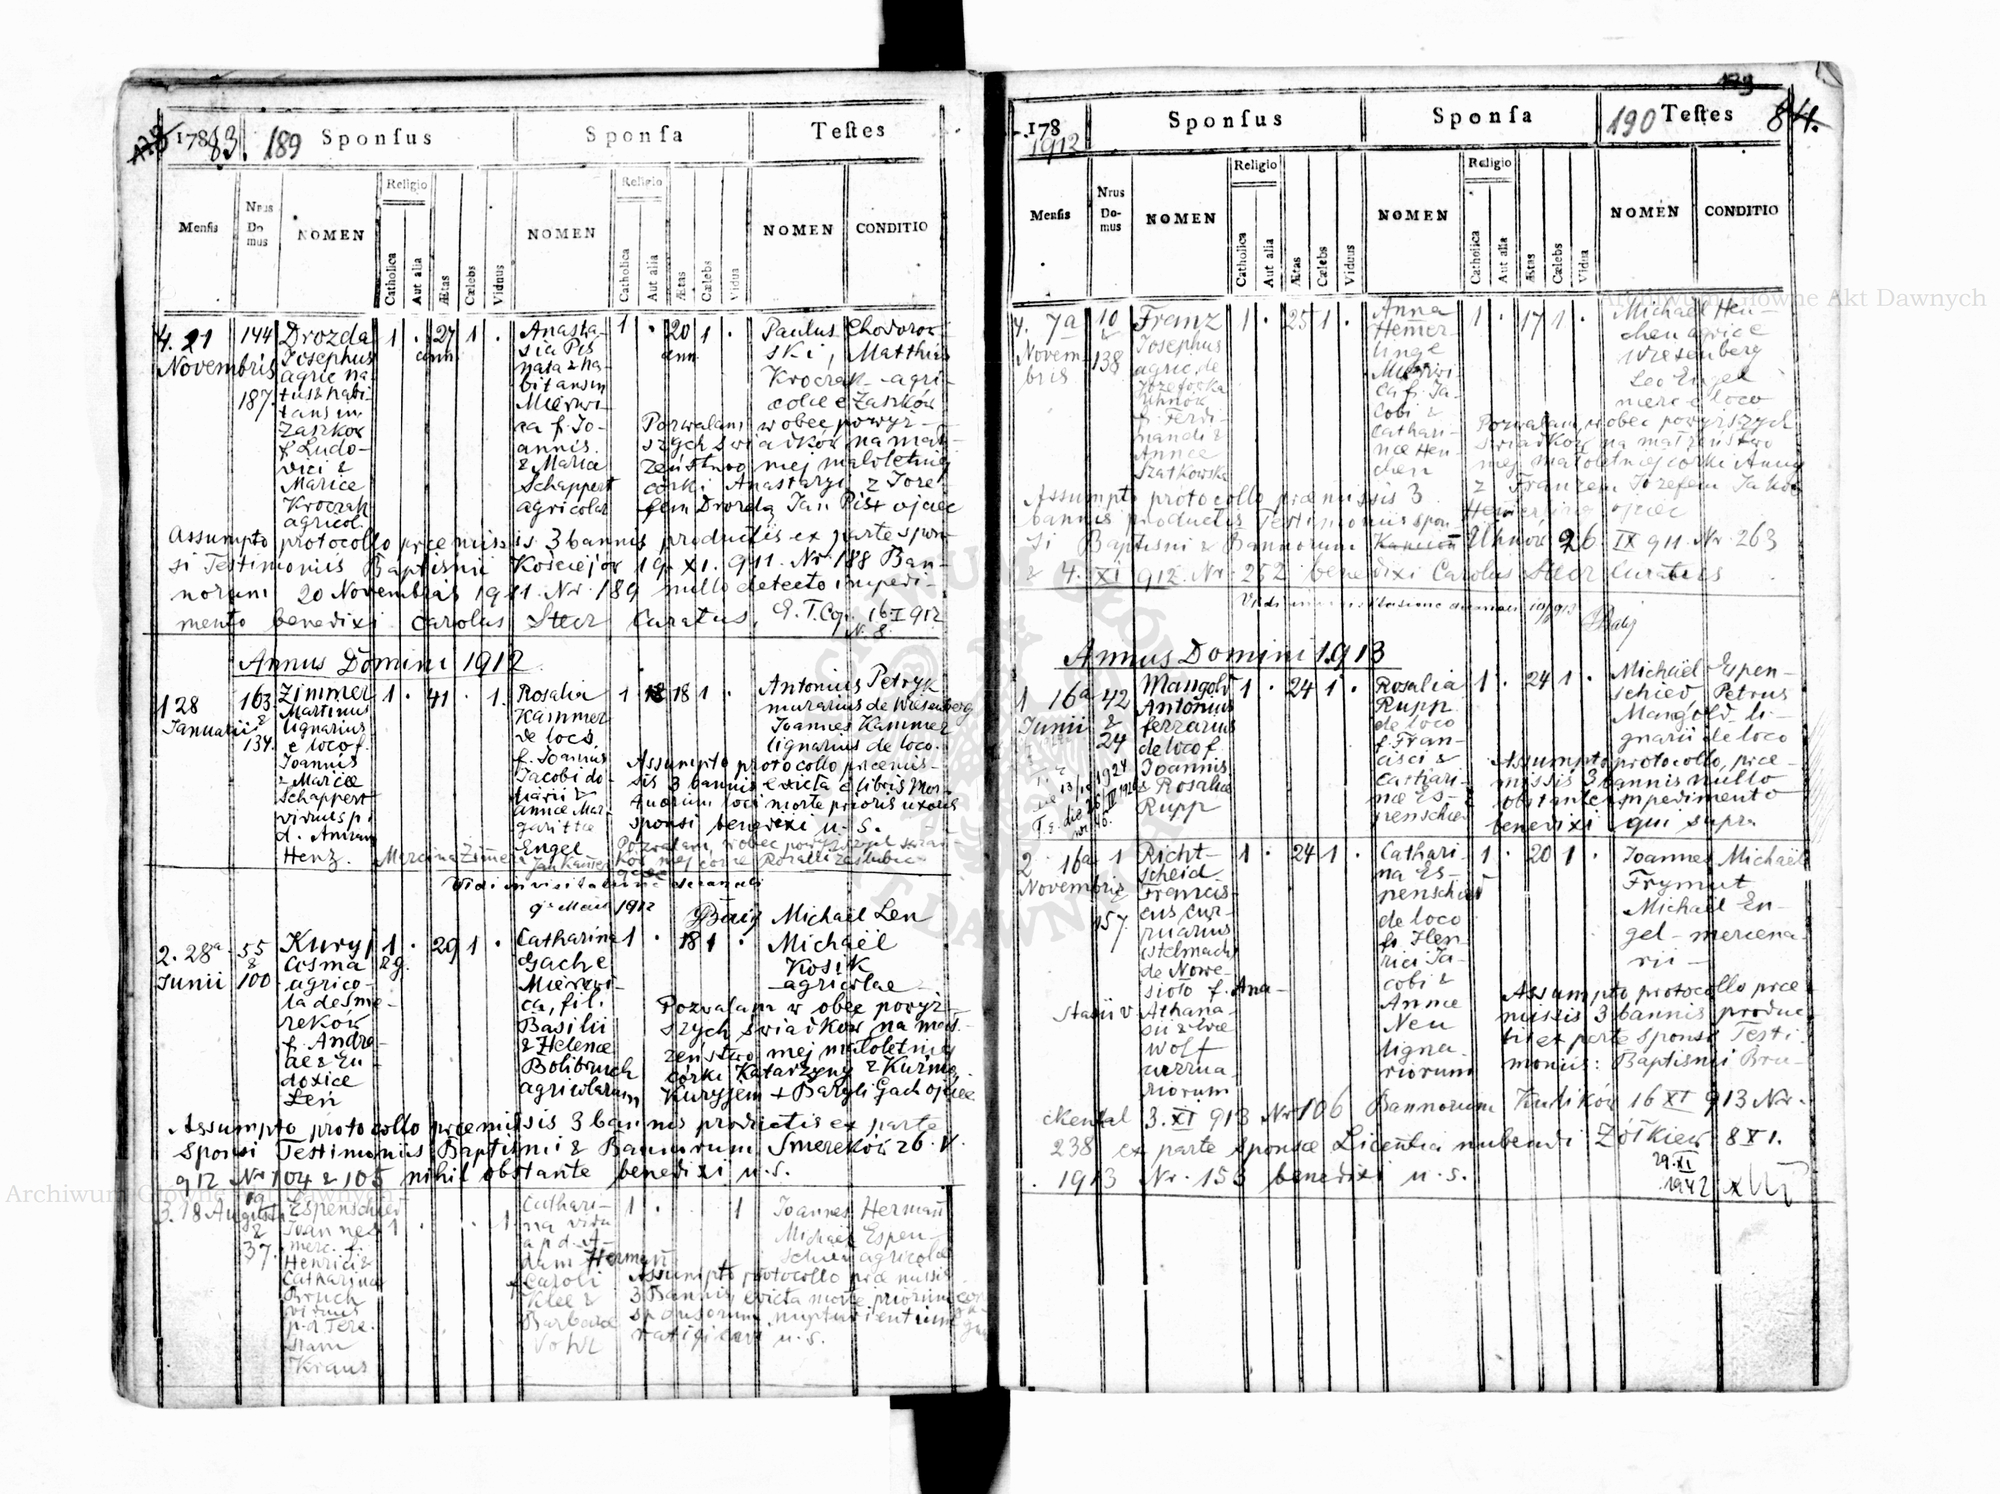 178 83. 189 Sponsus Sponsa Testes
Mensis Nrus Domus NOMEN Religio Catholica Aut alia Ætas Cælebs Viduus NOMEN Religio Catholica Aut alia Ætas Cælebs Vidua NOMEN CONDITIO
4. 21 Novembris
144
187.
Drozda
Josephus
agric na-
tus & habi-
tans in
Zaszkow
f. Ludo-
vici &
Mariæ
Kroczak
agricol.
1 . 27 ann 1 .
Anasta-
sia Pis
nata & ha-
bitans in
Mierzwi-
ca f. Jo-
annis
& Maria
Schappert
agricolar
1 . 20 ann 1 .
Paulus Chodorow
ski, Matthias
Kroczak agri-
colæ e Zaszków
Pozwalam w obec powyż-
szych świadków na mał-
żeństwo mej małoletniej
córki Anastazyi z Józe-
fem Drozdą Jan Piś+ ojciec
Assumpto protocollo præmissis 3 bannis productis ex parte spon-
si Testimoniis Baptismi Kościejów 19. XI. 911. Nr 188 Ban-
norum 20 Novembris 1911. Nr. 189 nullo detecto impedi-
mento benedixi Carolus Steer Curatus. E. T. Cop. 16 I 1912
N. 8.
Annus Domini 1912
1 28
Januarii
163
&
134.
Zimmer
Martinus
lignarius
e loco f.
Joannis
& Mariæ
Schappert
viduus p.
d. Annam
Henz.
1 . 41 . 1.
Rosalia
Kammer
de loco
f. Joannis
Jacobi do-
narii &
Annæ Mar-
garittæ
Engel
1 18 18 1 .
Antonius Petryk
murarius de Wiesenberg
Joannes Kammer
lignarius de loco.
Assumpto protocollo præmis-
sis 3 bannis evicta e libris Mor-
tuorum loci morte prioris uxoris
sponsi benedixi u. s.
Marcina Zimmer
Jan Kammer
Vidi in visitatione decanali
9 Maii 1912
2. 28a
Junii
55
&
100
Kuryj
Cosma
agrico-
la de Sme-
reków
f. Andre-
æ & Eu-
doxiæ
Leń
1 rg. . 29 1 .
Catharina
Gach e
Mierzwi-
ca, fil.
Basilii
& Helenæ
Bolibruch
agricolarum
1 . 18 1 .
Michaël Len
Michaël
Kosik
agricolae
Pozwalam w obec powyż-
szych świadków na mał-
żeństwo mej małoletniej
córki Katarzyny z Kuźmą
Kuryjem + Bazyli Gach ojciec
Assumpto protocollo præmissis 3 bannis productis ex parte
Sponsi Testimoniis Baptismi & Bannorum Smereków 26. V.
912 Nr 104 & 105 nihil obstante benedixi u. s.
3. 18 Augusti
19
&
37.
Espenschied
Joannes
merc. f.
Henrici &
Catharinæ
Bruch
viduus
p. d. Tere-
siam
Kraus
1 . . . 1
Cathari-
na vidu
a p. d. A-
dam Hermań
f Caroli
Klee &
Barbaræ
Vohl
1 . . 1
Joannes Hermań
Michaël Espen-
schied agricolæ
Assumpto protocollo præmissis
3 Bannis evicta morte priorum con
sponsorum nupturientium
u. s.
178 1912 Sponsus Sponsa 190 Testes 84.
Mensis Nrus Domus NOMEN Religio Catholica Aut alia Ætas Cælebs Viduus NOMEN Religio Catholica Aut alia Ætas Cælebs Vidua NOMEN CONDITIO
4. 7a
Novem-
bris
10
&
138
Franz
Josephus
agric. de
Józefówka
Uhnów
f. Ferdi-
nandi &
Annæ
Szatkowska
1 . 25 1 .
Anna
Hemer-
linge
Mierzwi-
ca f. Ja-
cobi &
Cathari-
næ Hen-
chen
1 . 17 1 .
Michaël Hen-
chen agric e
Wiesenberg
Leo Engel
merc e loco
Pozwalam w obec powyższych
świadków na małżeństwo
mej małoletniej córki Anny
z Franzem Józefem Jakób
Hemerling ojciec
Assumpto protocollo præmissis 3
bannis productis Testimoniis spon-
si Baptismi & Bannorum Uhnów 26 IX 911. Nr. 263
& 4. XI 912. Nr. 252 benedixi Carolus Steer Curatus
Annus Domini 1913
1 16a
Junii
42
&
24
Mangold
Antonius
ferrarius
de loco f.
Joannis
& Rosaliæ
Rupp
1 . 24 1 .
Rosalia
Rupp
de loco
f. Fran-
cisci &
Cathari-
næ Es-
penschied
1 . 24 1 .
Michaël Espen-
schied, Petrus
Mangold li-
gnarii de loco
Assumpto protocollo, præ-
missis 3 bannis nullo
obstante impedimento
benedixi qui supra
2 16a
Novembris
1
157.
Richt-
scheid
Francis-
cus cur-
ruarius
(stelmach)
de Nowe-
sioło f. Ana-
stasii v Athana-
sii & Evæ
Wolf
currua-
riorum
1 . 24 1 .
Cathari-
na Es-
penschied
de loco
f. Hen-
rici Ja-
cobi &
Annæ
Neu
ligna-
riorum
1 . 20 1 .
Joannes Michaël
Frymut
Michaël En-
gel - mercena-
rii -
Assumpto protocollo præ-
missis 3 bannis produc-
tis ex parte Sponsi Testi-
moniis: Baptismi Bru-
ckental 3. XI 913 Nr 106 Bannorum Kulików 16 XI 913 Nr.
238 ex parte sponsæ Licentia nubendi Żółkiew 8 XI.
1913 Nr. 153 benedixi u. s.
29. XI
1942
Archiwum Główne Akt Dawnych
Archiwum Główne Akt Dawnych